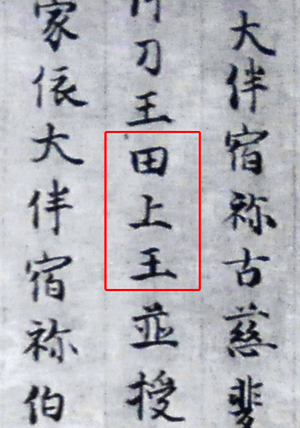 大伴宿祢古慈斐
刀王田上王並授
家依大伴宿祢伯